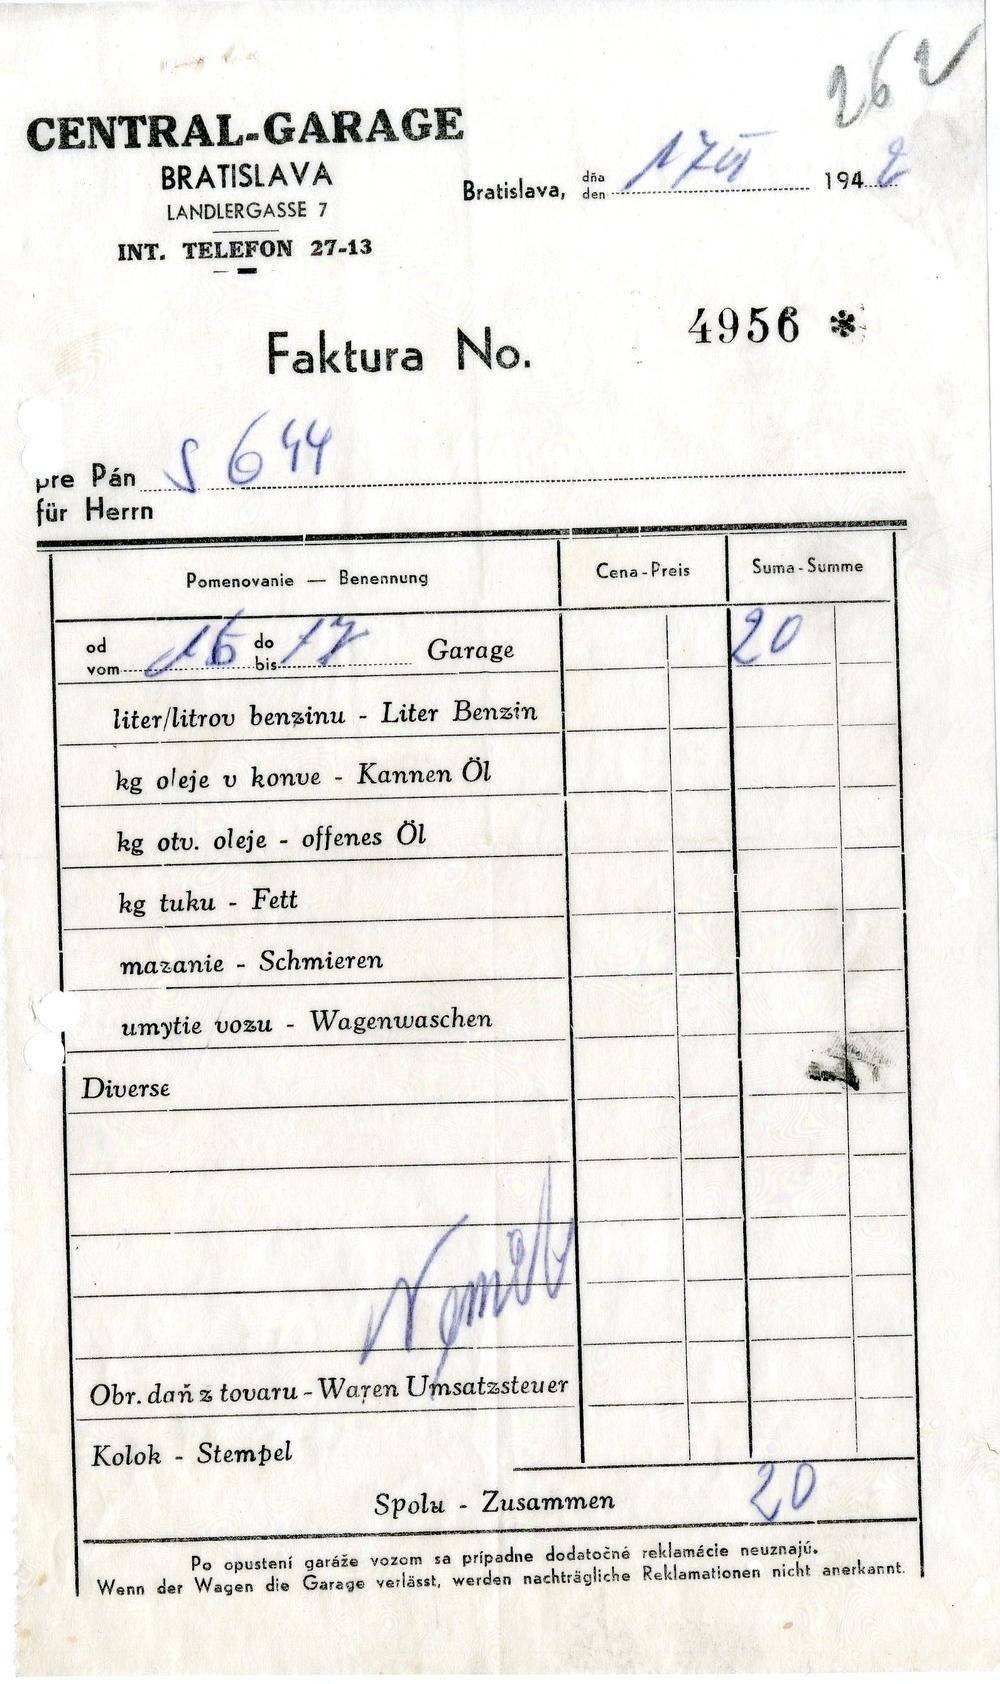 262
CENTRAL-GARAGE
BRATISLAVA
LANDLERGASSE 7
INT. TELEFON 27-13
Bratislava, dňa
den 17 194 2
Faktura No. 4956 *
pre Pán S 644
für Herrn
Pomenovanie — Benennung Cena-Preis Suma-Summe
od 16 do 17 Garage 20
vom bis
liter/litrov benzinu - Liter Benzin
kg oleje v konve - Kannen Öl
kg otv. oleje - offenes Öl
kg tuku - Fett
mazanie - Schmieren
umytie vozu - Wagenwaschen
Diverse
Obr. daň z tovaru - Waren Umsatzsteuer
Kolok - Stempel
Spolu - Zusammen 20
Po opustení garáže vozom sa prípadne dodatočné reklamácie neuznajú.
Wenn der Wagen die Garage verlässt, werden nachträgliche Reklamationen nicht anerkannt.